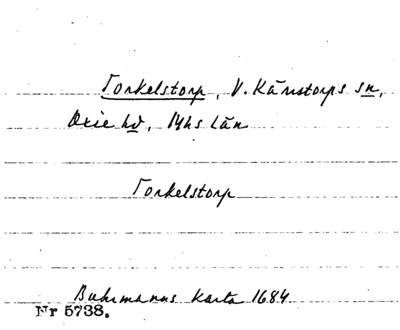 Torkelstorp, V. Kärrstorps sn,
Oxie hd, Mhs län
Torkelstorp
Buhrmanns karta 1684
Nr 5738.